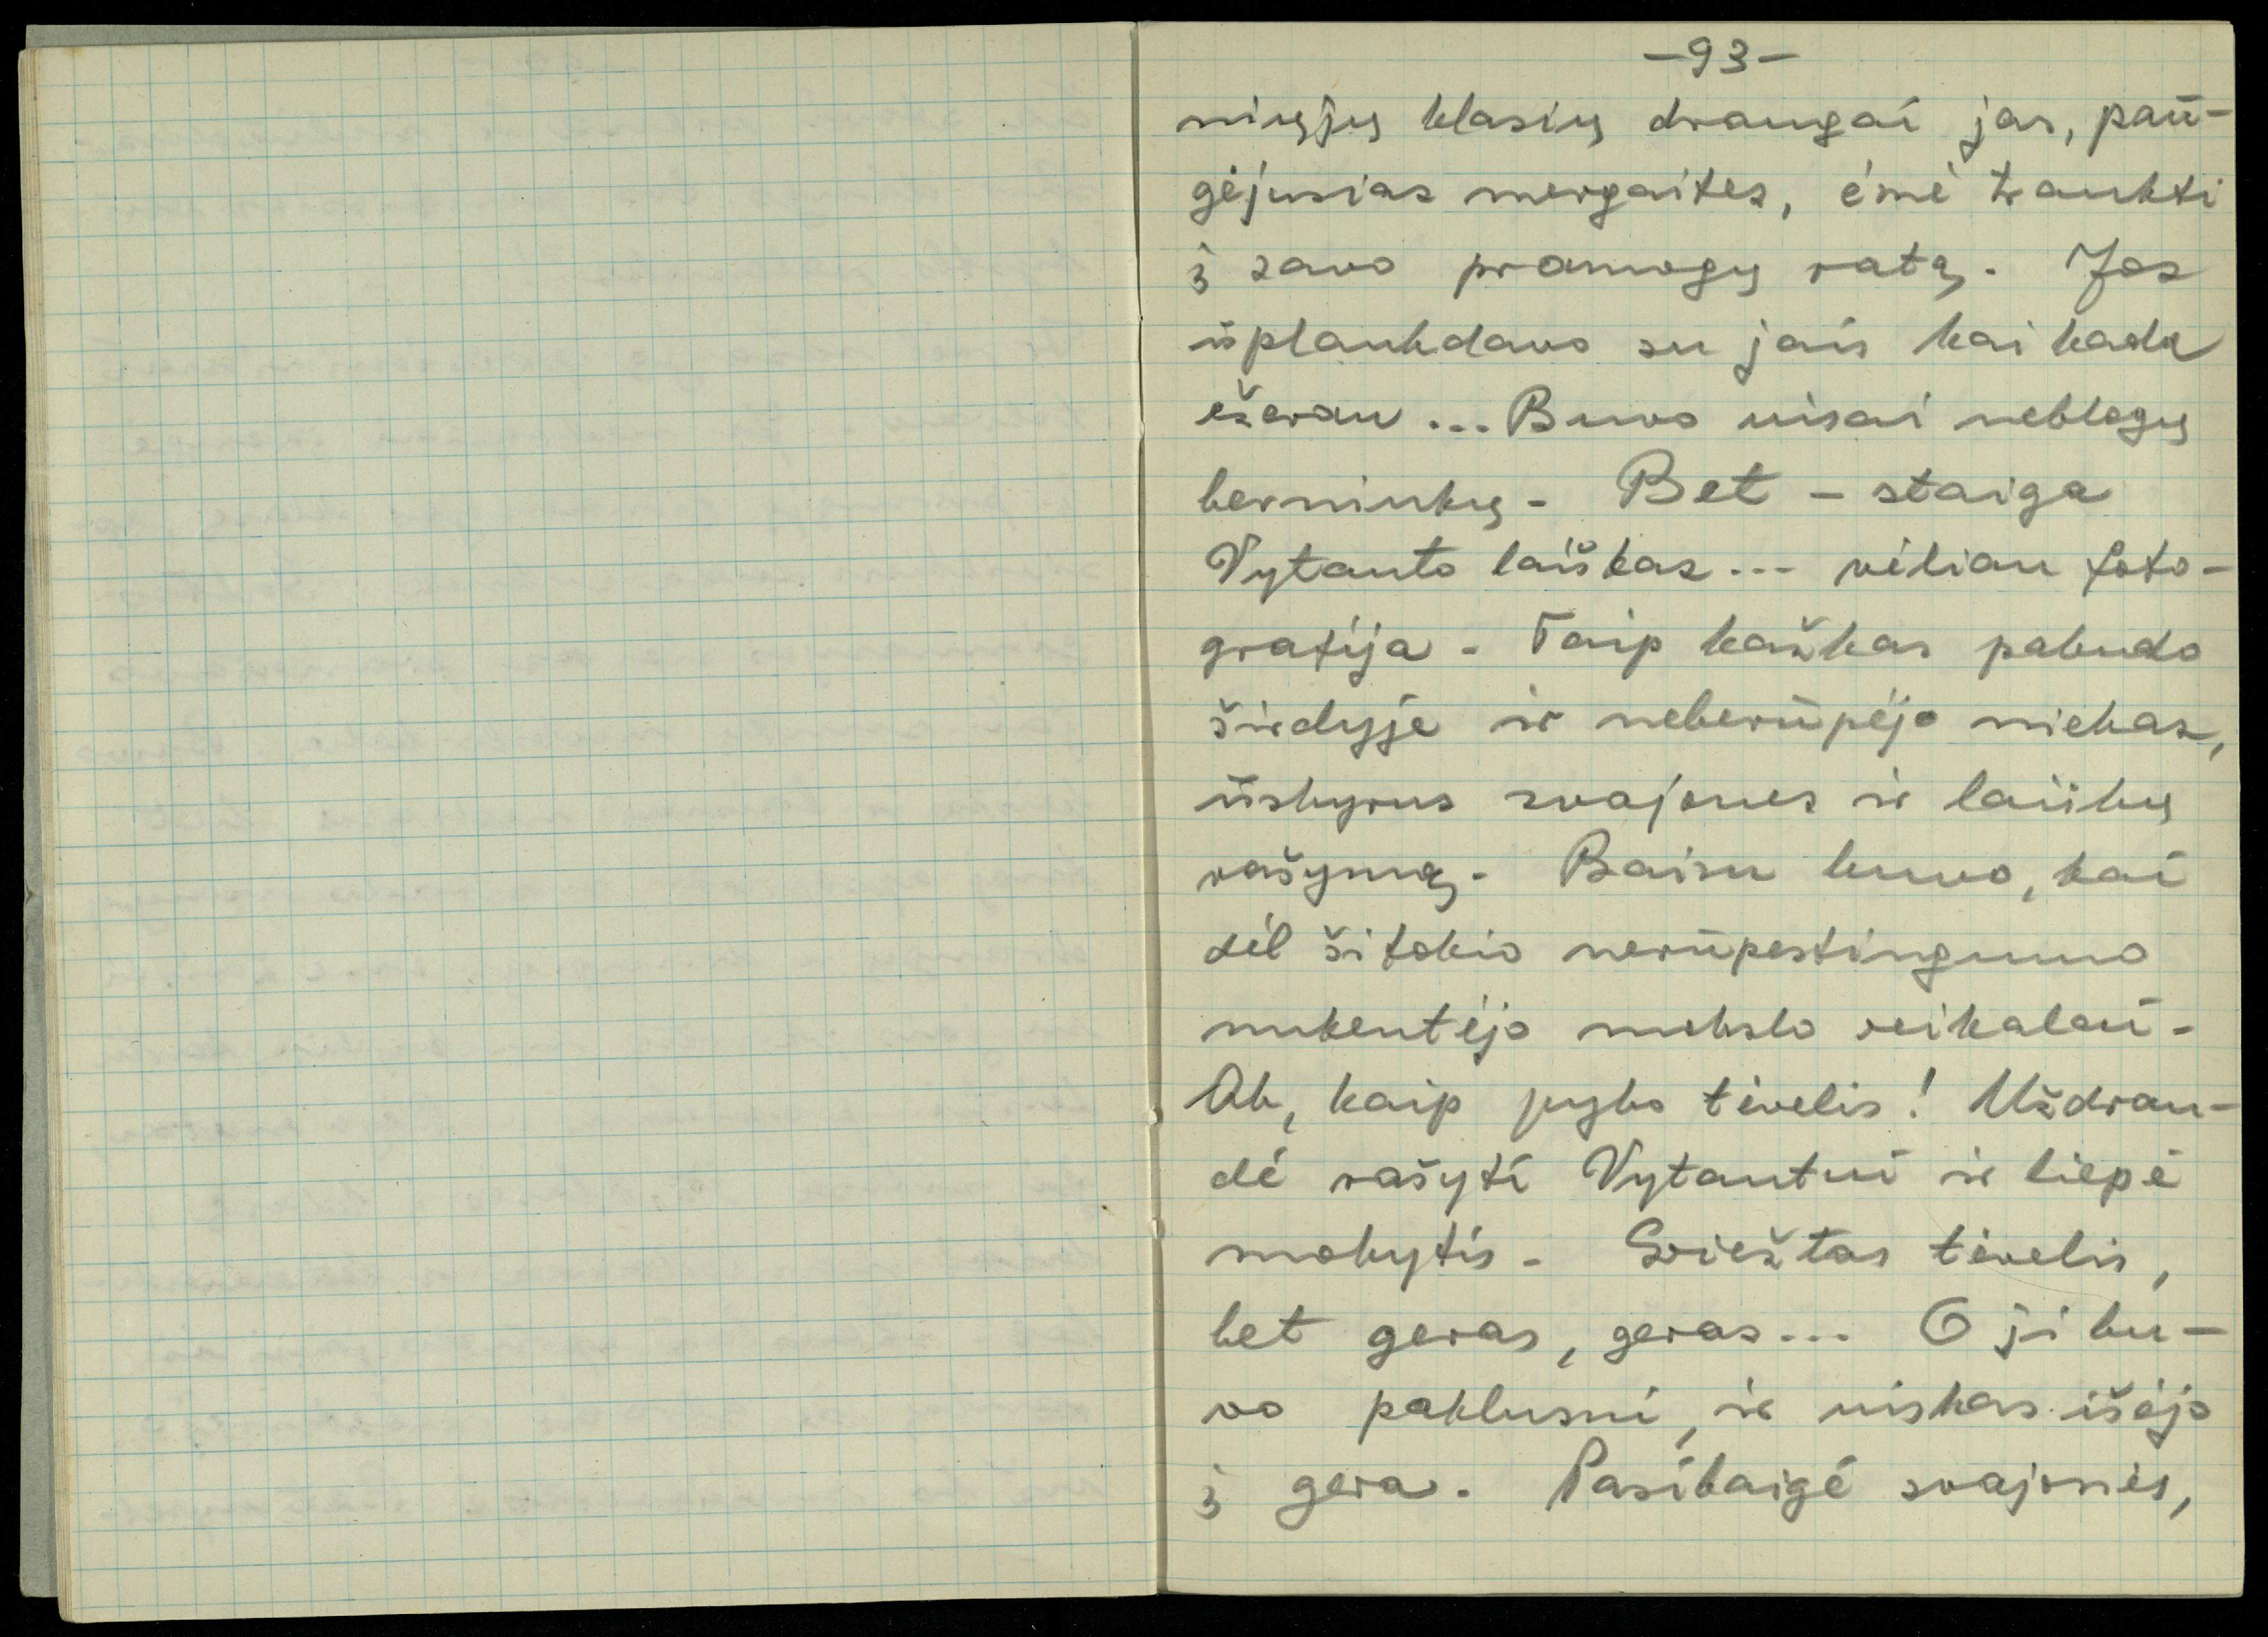 -93-
niųjų klasių draugai jas, paū-
gėjusias mergaites, ėmė traukti
į savo pramogų ratą. Jos
išplaukdavo su jais kai kada
ežeran ... Buvo visai neblogų
berniukų. Bet - staiga
Vytauto laiškas ... vėliau foto-
grafija. Taip kažkas pabudo
širdyje ir neberūpėjo niekas,
išskyrus svajones ir laiškų
rašymą. Baisu buvo, kai
dėl šitokio nerūpestingumo
nukentėjo mokslo reikalai.
Ak, kaip pyko tėvelis! Uždrau-
dė rašyti Vytautui ir liepė
mokytis. Griežtas tėvelis,
bet geras, geras... O ji bu-
vo paklusni, ir viskas išėjo
į gera. Pasibaigė svajonės,